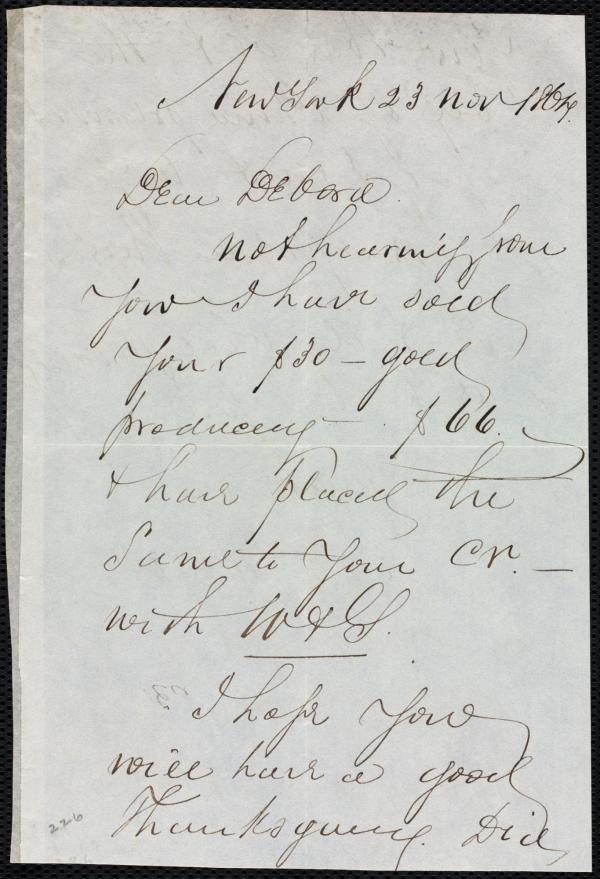 New York 23 Nov 1864.
Dear Debora.
not hearing from
you I have sold
your $30 - gold
producing - $66.
& have placed the
Same to your Cr. -
with W & G.
I hope you
will have a good
Thanksgiving. Did
226